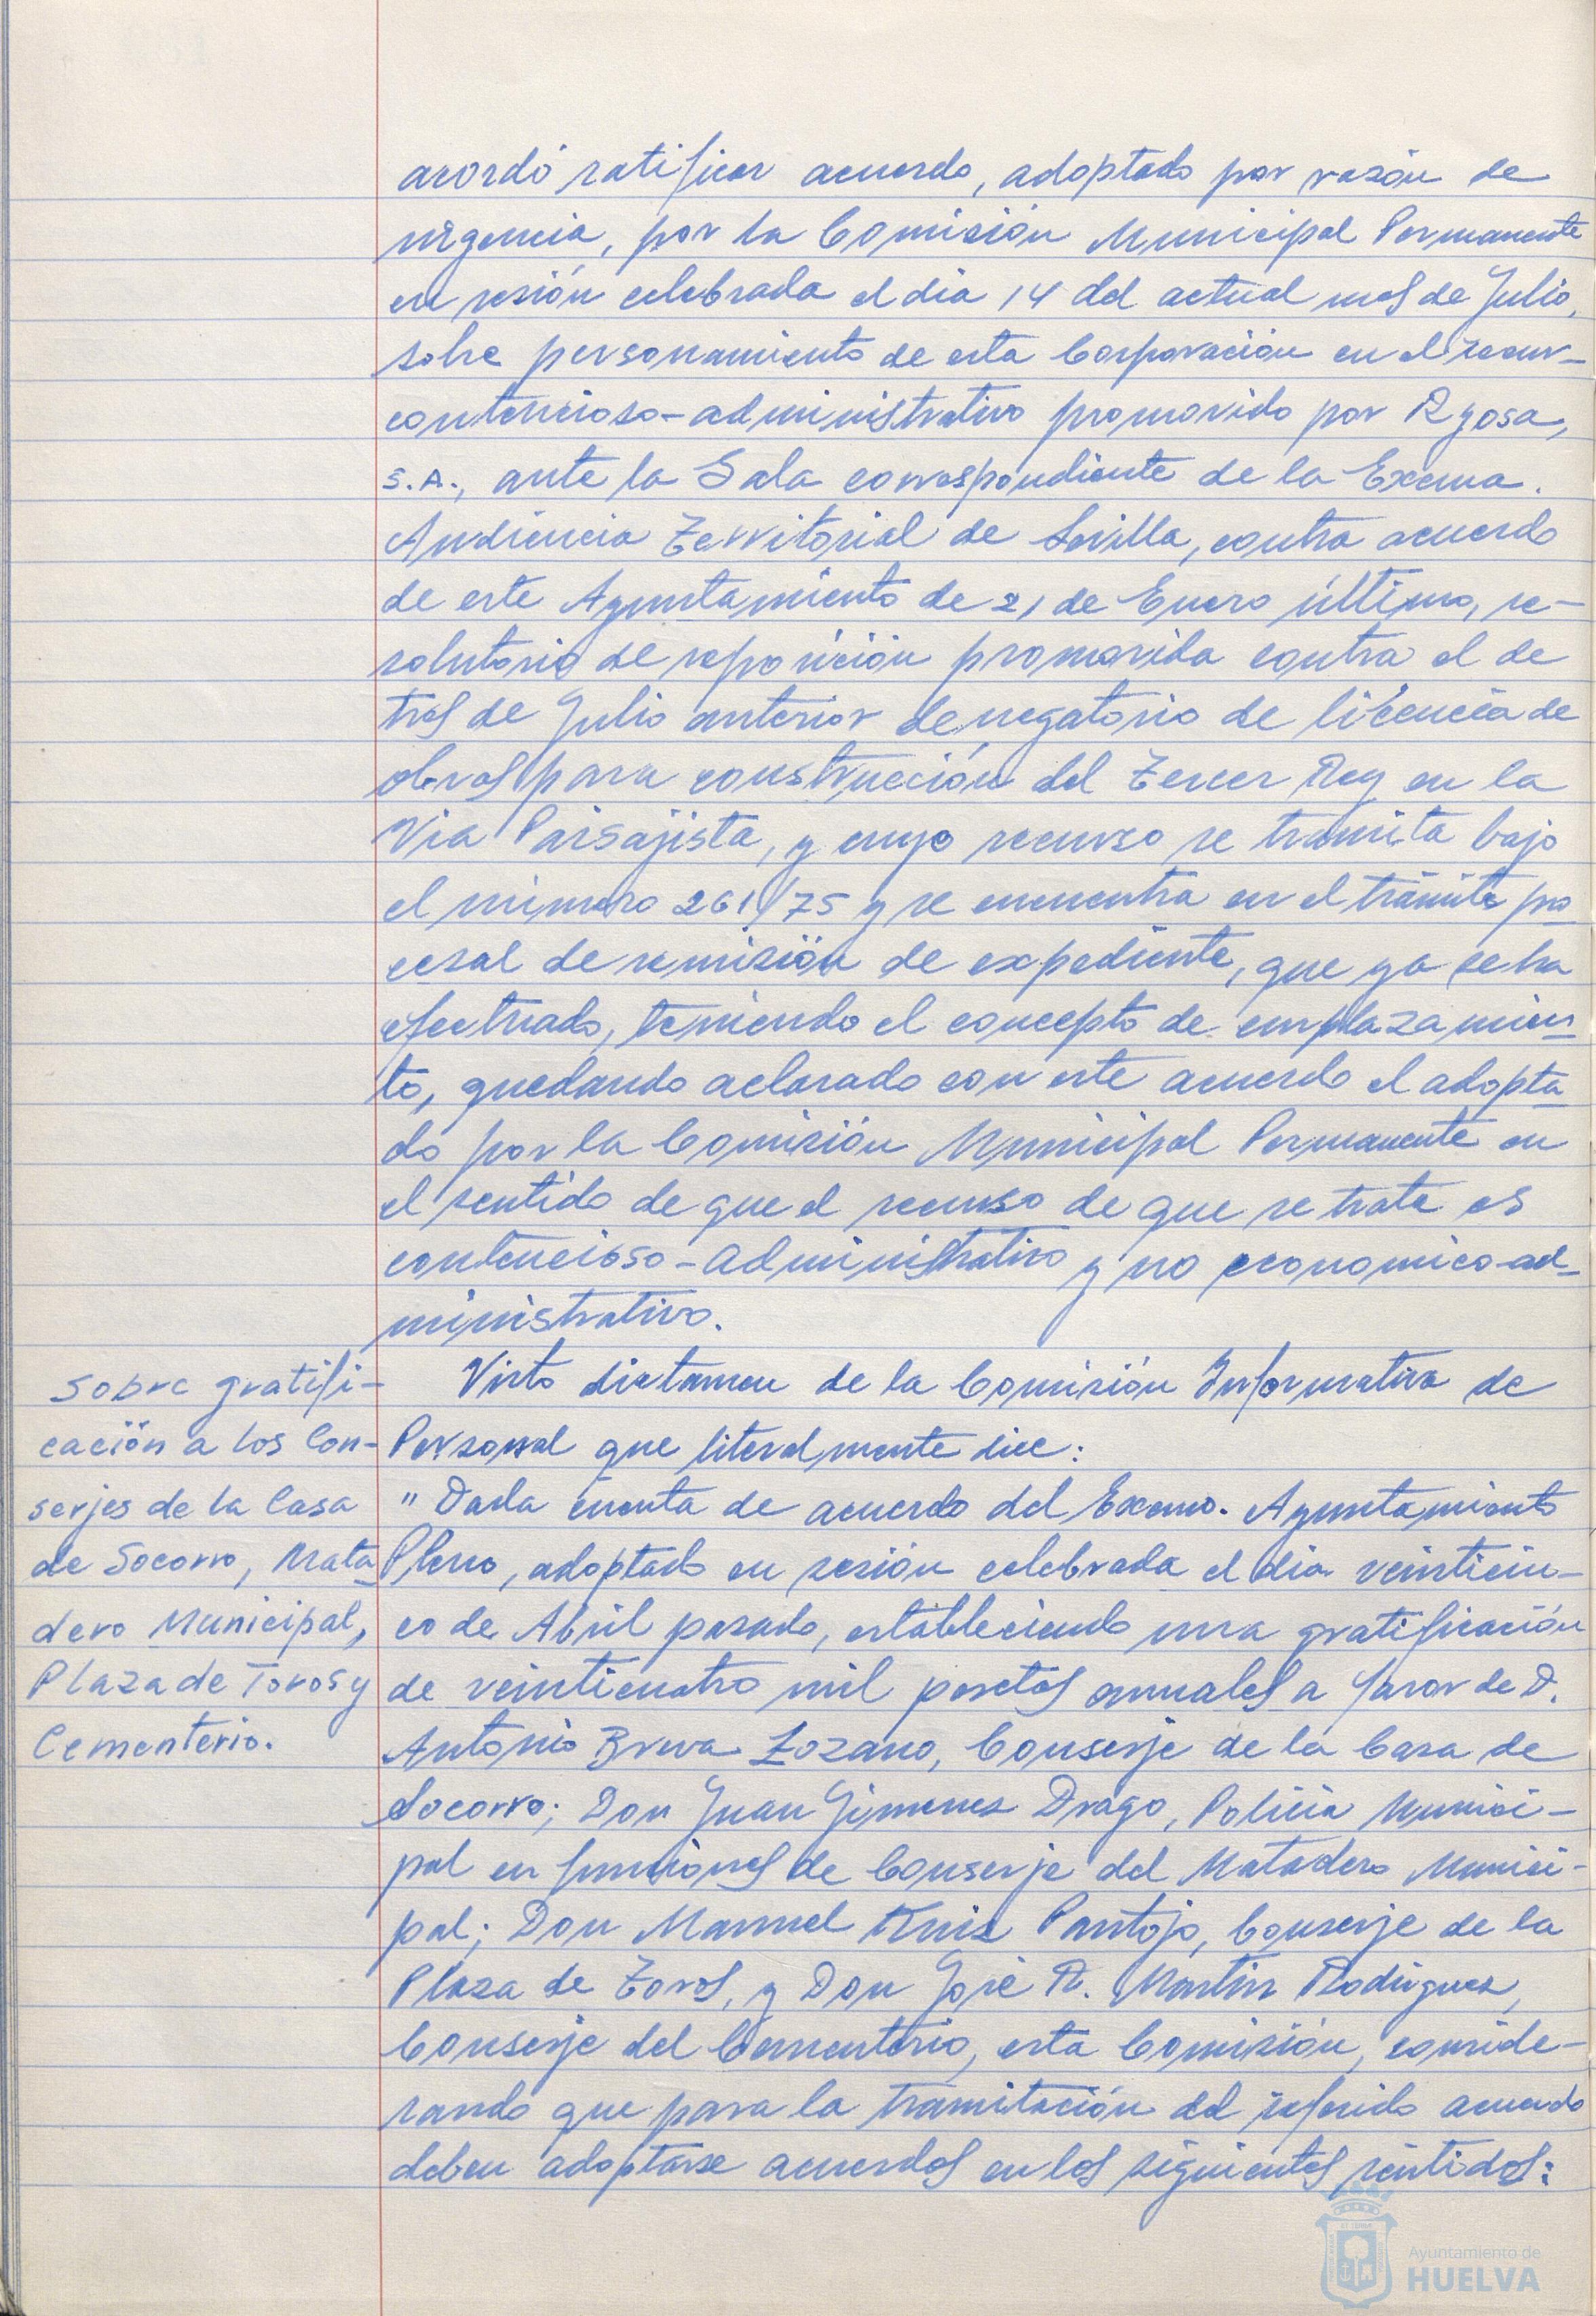 acordó ratificar acuerdo, adoptado por razón de
urgencia, por la Comisión Municipal Permanente
en sesión celebrada el dia 14 del actual mes de Julio,
sobre personamiento de esta Corporación en el recur-
contencioso-administrativo promovido por Ryosa,
S.A., ante la Sala correspondiente de la Excma.
Audiencia Territorial de Sevilla, contra acuerdo
de este Ayuntamiento de 21 de Enero último, re-
solutorio de reposición promovida contra el de
tres de Julio anterior denegatorio de licencia de
obras para construcción del Tercer Rey en la
Via Paisajista, y cuyo recurso se tramita bajo
el número 261/75 y se encuentra en el trámite pro
cesal de remisión de expediente, que ya se ha
efectuado, teniendo el concepto de emplazamien
to, quedando aclarado con este acuerdo el adopta
do por la Comisión Municipal Permanente en
el sentido de que el recurso de que se trata es
contencioso-administrativo y no economico-ad-
ministrativo.
Sobre gratifi-
cación a los Con-
serjes de la Casa
de Socorro, Mata
dero Municipal,
Plaza de Toros y
Cementerio.
Visto dictamen de la Comisión Informativa de
Personal que literalmente dice:
"Dada cuenta de acuerdo del Excmo. Ayuntamiento
Pleno, adoptado en sesión celebrada el dia veinticin-
co de Abril pasado, estableciendo una gratificación
de veinticuatro mil pesetas anuales a favor de D.
Antonio Brera Lozano, Conserje de la Casa de
Socorro; Don Juan Jimenez Drago, Policia Munici-
pal en funciones de Conserje del Matadero Munici-
pal; Don Manuel Ruiz Pantoja, Conserje de la
Plaza de Toros, y Don José R. Martin Rodriguez,
Conserje del Cementerio, esta Comisión, conside-
rando que para la tramitación del referido acuerdo
deben adoptarse acuerdos en los siguientes sentidos:
Ayuntamiento de
HUELVA